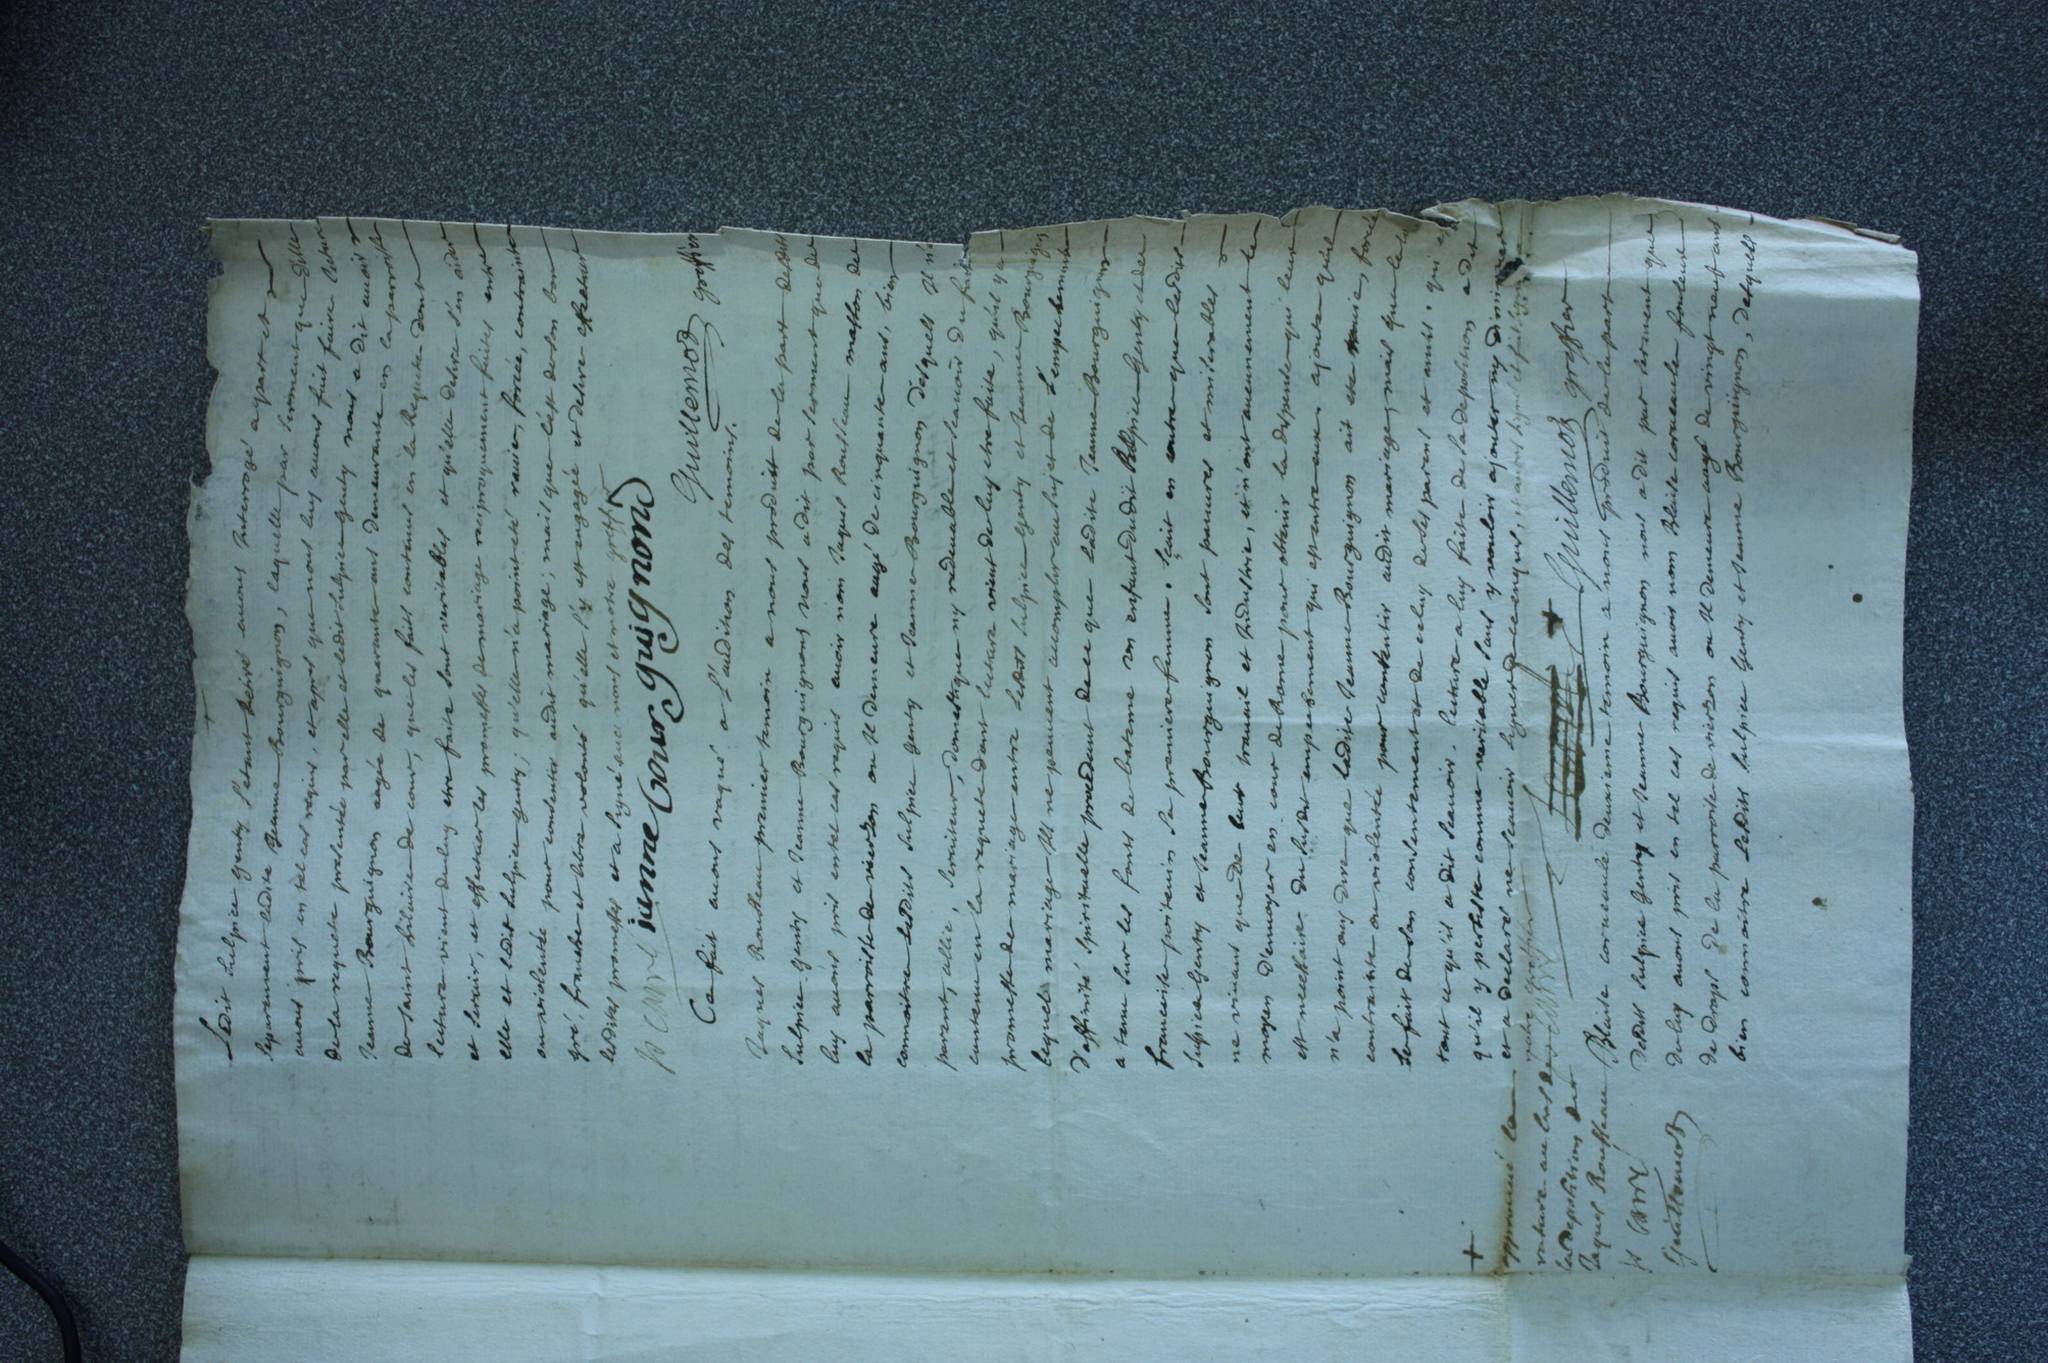 Ledit Sulpice Genty s'etant retiré avons interrogé a part et
separement ladite Jeanne Bourguignon, laquelle par serment que d'elle
avons pris en tel cas requis, et apres que nous luy avons fait faire lecture
de la requete presentée par elle et ledit Sulpice Genty nous a dit avoir
Jeanne Bourguignon aagée de quarante ans demeurante en la parroisse
de Saint hilaire de cour, que les faits contenus en la Requete dont
lecture vient de luy etre faite sont veritables et qu'elle desire s'en aider
et servir, et effectuer les promesses de mariage reciproquement faites entre
elle et ledit Sulpice Genty; qu'elle n'a point eté ravie, forcée, contrainte
ou violentée pour consentir audit mariage; mais que c'est de son bon
gré, franche et libre volonté qu'elle s'y est engagée et desire effectuer
lesdites promesses et a signé avec nous et notre greffier
jeanne bourguignond
Guillemoz greffier
Ce fait avons vaqué a l'audition des temoins.
Jacques Rousseau premier temoin a nous produit de la part desdits
Sulpice Genty et Jeanne Bourguignon nous a dit par serment que de
luy avons pris en tel cas requis avoir nom Jaques Rousseau masson de
la parroisse de vierzon ou Il demeure aagé de cinquante ans, bien
connoitre lesdits Sulpice Genty et Jeanne Bourguignon desquels Il n'est
parent, allié, serviteur, domestique ny redevable et scavoir du fait
contenu en la requete dont lecture vient de luy etre faite, qu'il y a
promesse de mariage entre lesdits Sulpice Genty et Jeanne Bourguignon
lequel mariage Ils ne peuvent accomplir au sujet de l'empechement
d'affinité spirituelle procedant de ce que ladite Jeanne Bourguignon
a tenu sur les fonts de bateme un enfant dudit Sulpice Genty et de
francoise poitevin sa premiere femme. Scait en outre que lesdits
Sulpice Genty et Jeanne Bourguignon sont pauvres et miserables
ne vivants que de leur travail et Industrie, et n'ont aucunement le
moyen d'envoyer en cour de Rome pour obtenir la dispense qui leur
est necessaire du susdit empechement qui est entre eux, ajoute qu'il
n'a point ouy dire que ladite Jeanne Bourguignon ait eté ravie, forcée
contrainte ou violentée pour consentir audit mariage, mais que le
tout se fait de son consentement et de celuy de ses parens et amis. qui est
tout ce qu'il a dit scavoir. lecture a luy faite de sa deposition a dit
qu'il y persiste comme veritable sans y vouloir ajouter ny diminuer
et a declaré ne scavoir signer de ce enquis,
notre greffier
Guillemoz greffier
Blaise corneault deuxieme temoin a nous produit de la part
desdits Sulpice Genty et Jeanne Bourguignon nous a dit par serment que
de luy avons pris en tel cas requis avoir nom Blaise corneault fouleur
de draps de la parroisse de vierzon ou Il demeure aagé de vingt neuf ans
bien connoitre lesdits Sulpice Genty et Jeanne Bourguignon, desquels
approuvé la
rature au bas de
la deposition de
Jaques Rousseau
Guillemoz